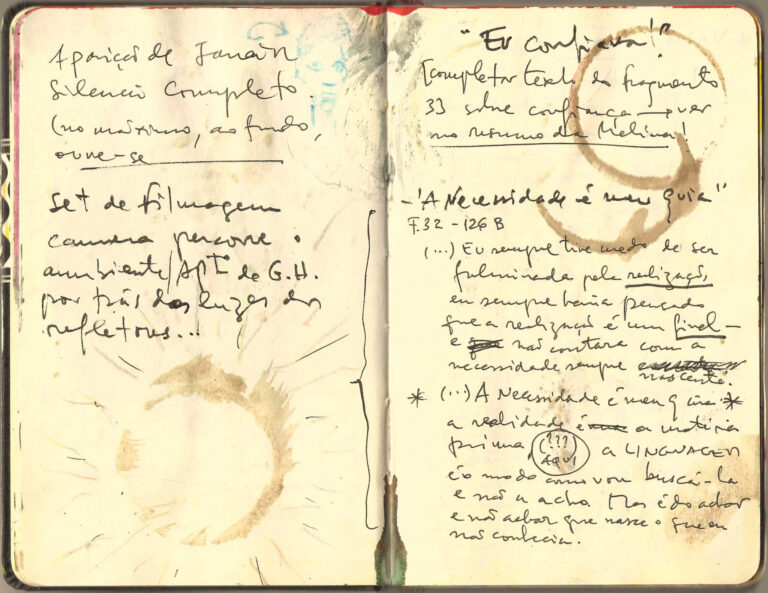 Aparição de Janair
Silencio Completo.
(no máximo, ao fundo,
ouve-se
Set de filmagem
camera percorre o
ambiente/Apt. de G.H.
por trás das luzes dos
refletores...
"Eu confiava!"
[completar texto do fragmento
33 sobre confiança → ver
no resumo da Melina!
- "A Necessidade é meu guia"
F.32 - 126 B
(...) Eu sempre tive medo de ser
fulminada pela realização,
eu sempre havia pensado
que a realização é um final -
e não contava com a
necessidade sempre nascente.
* (...) A Necessidade é meu guia *
a realidade é a matéria
prima, (???) AQUI a LINGUAGEM
é o modo como vou buscá-la
e não a acho. Mas é do achar
e não achar que nasce o que eu
não conhecia.